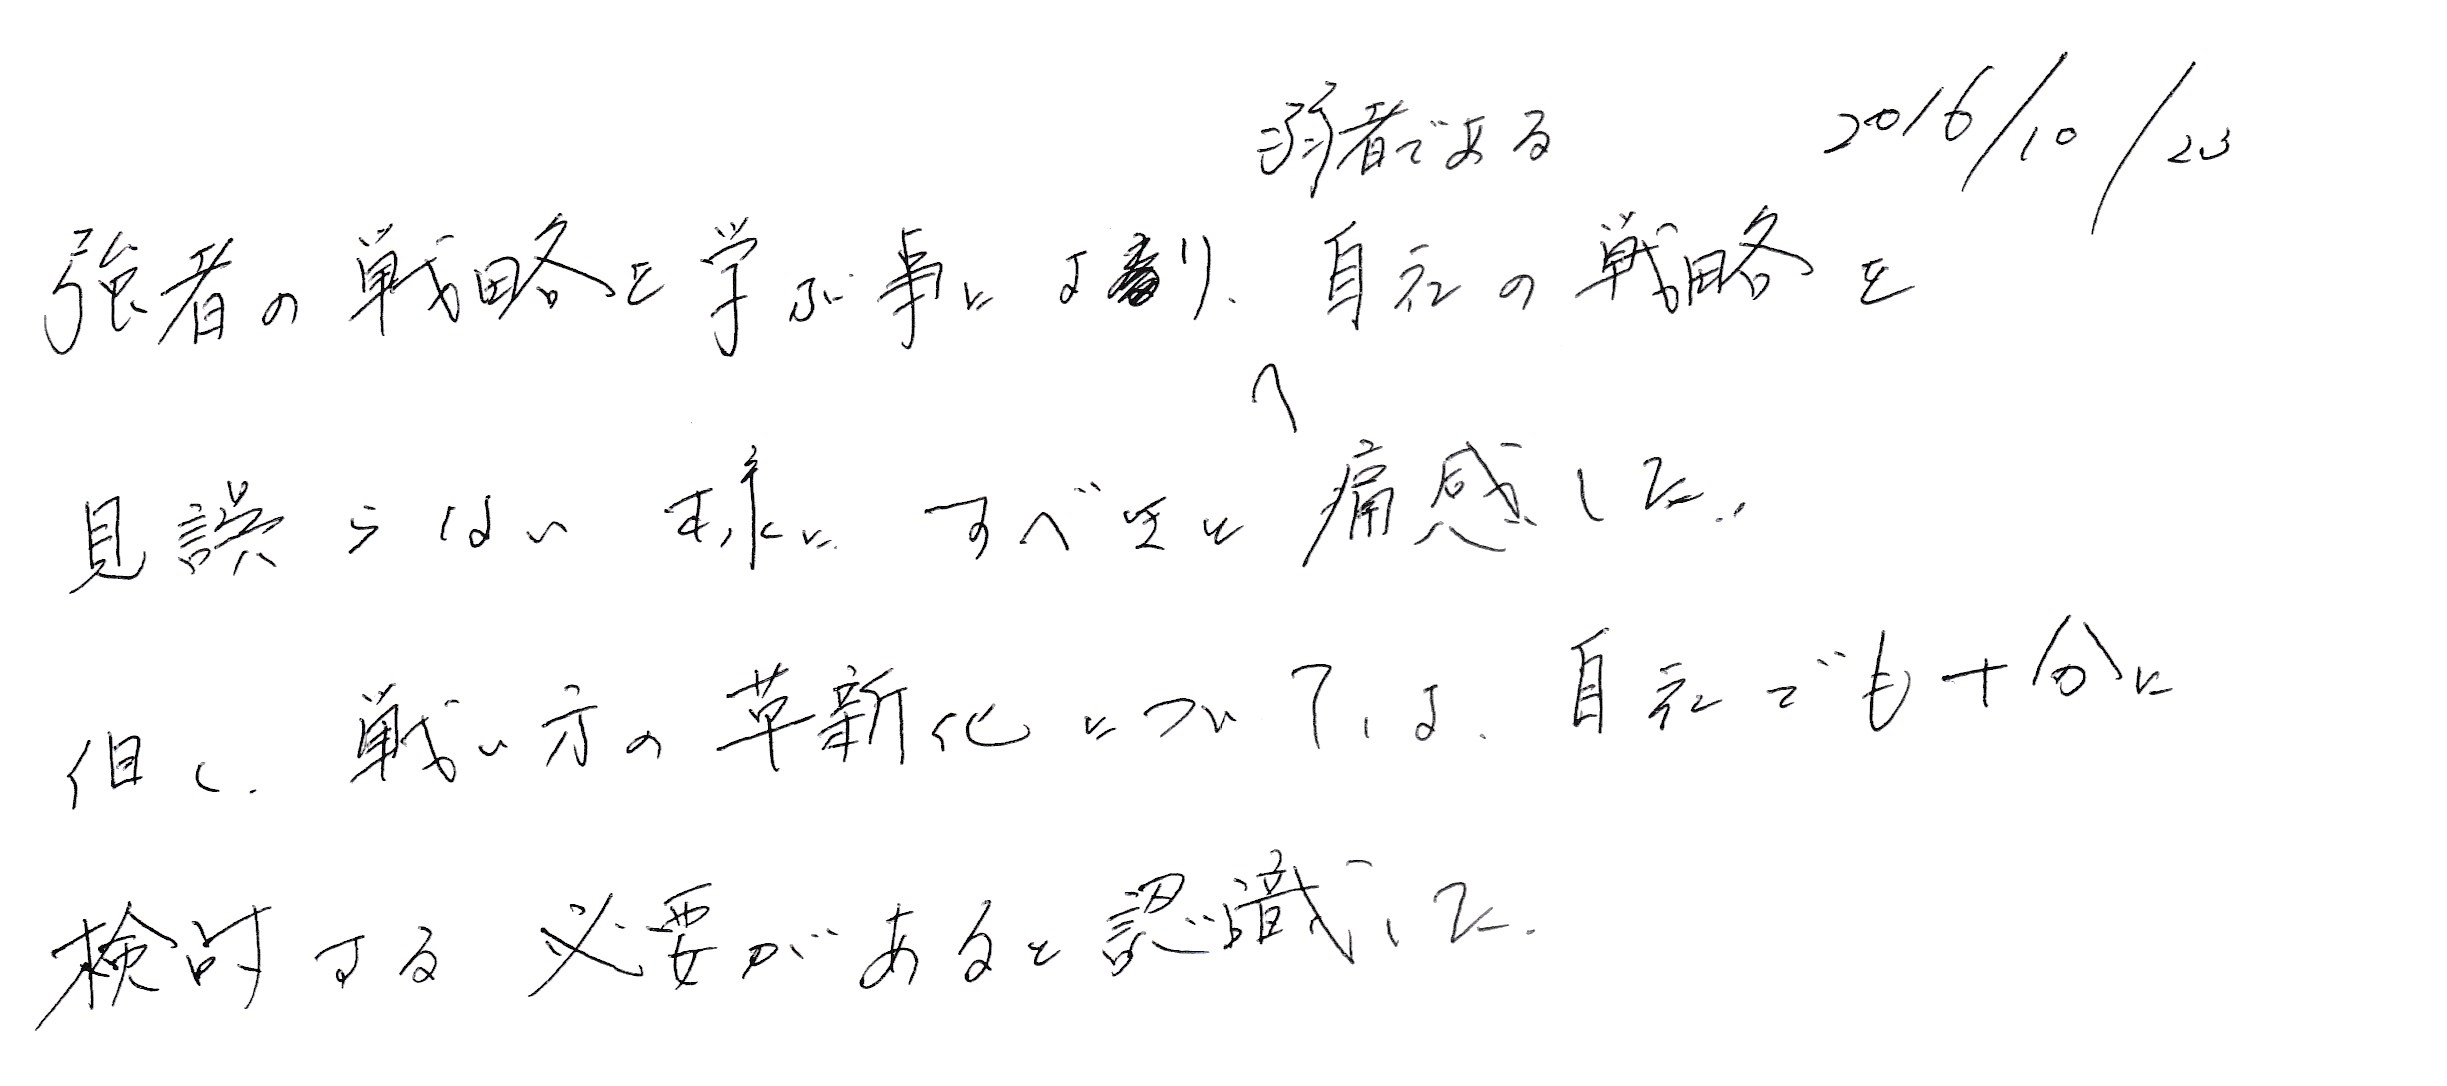 弱者である 2016/10/23
強者の戦略を学ぶ事により、自社の戦略を
見誤らない様に すべきと痛感した。
但し、戦い方の革新化については、自社でも十分に
検討する必要があると認識した。